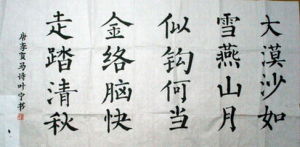 大漠沙如
雪燕山月
似钩何当
金络脑快
走踏清秋
唐李贺马诗叶宁书